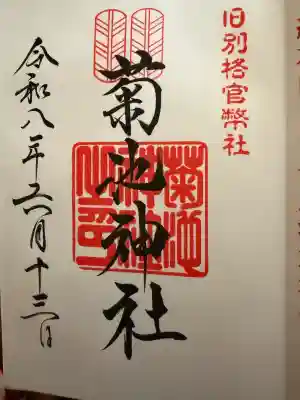 旧別格官幣社
菊池神社
菊池神社之印
令和八年六月十三日